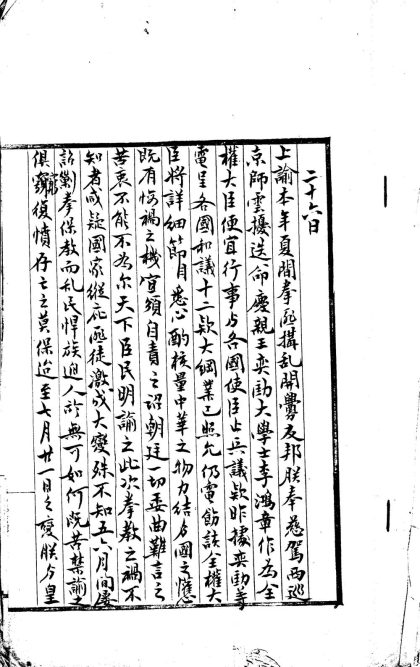 二十六日
上諭本年夏間拳匪搆乱開釁友邦朕奉慈駕西巡
京師雲擾迭命慶親王奕劻大學士李鴻章作為全
權大臣便宜行事与各國使臣止兵議款昨據奕劻等
電呈各國和議十二款大綱業已照允仍電飭該全權大
臣將詳細節目悉心酌核量中華之物力結与國之懽
既有悔禍之機宜頒自責之詔朝廷一切委曲難言之
苦衷不能不為尔天下臣民明諭之此次拳教之禍不
知者咸疑國家縱庇匪徒激成大變殊不知五六月間屢
詔剿拳保教而乱民悍族迫人於無可如何既苦禁諭之
俱窮復憤存亡之莫保迨至七月廿一日之變朕与皇